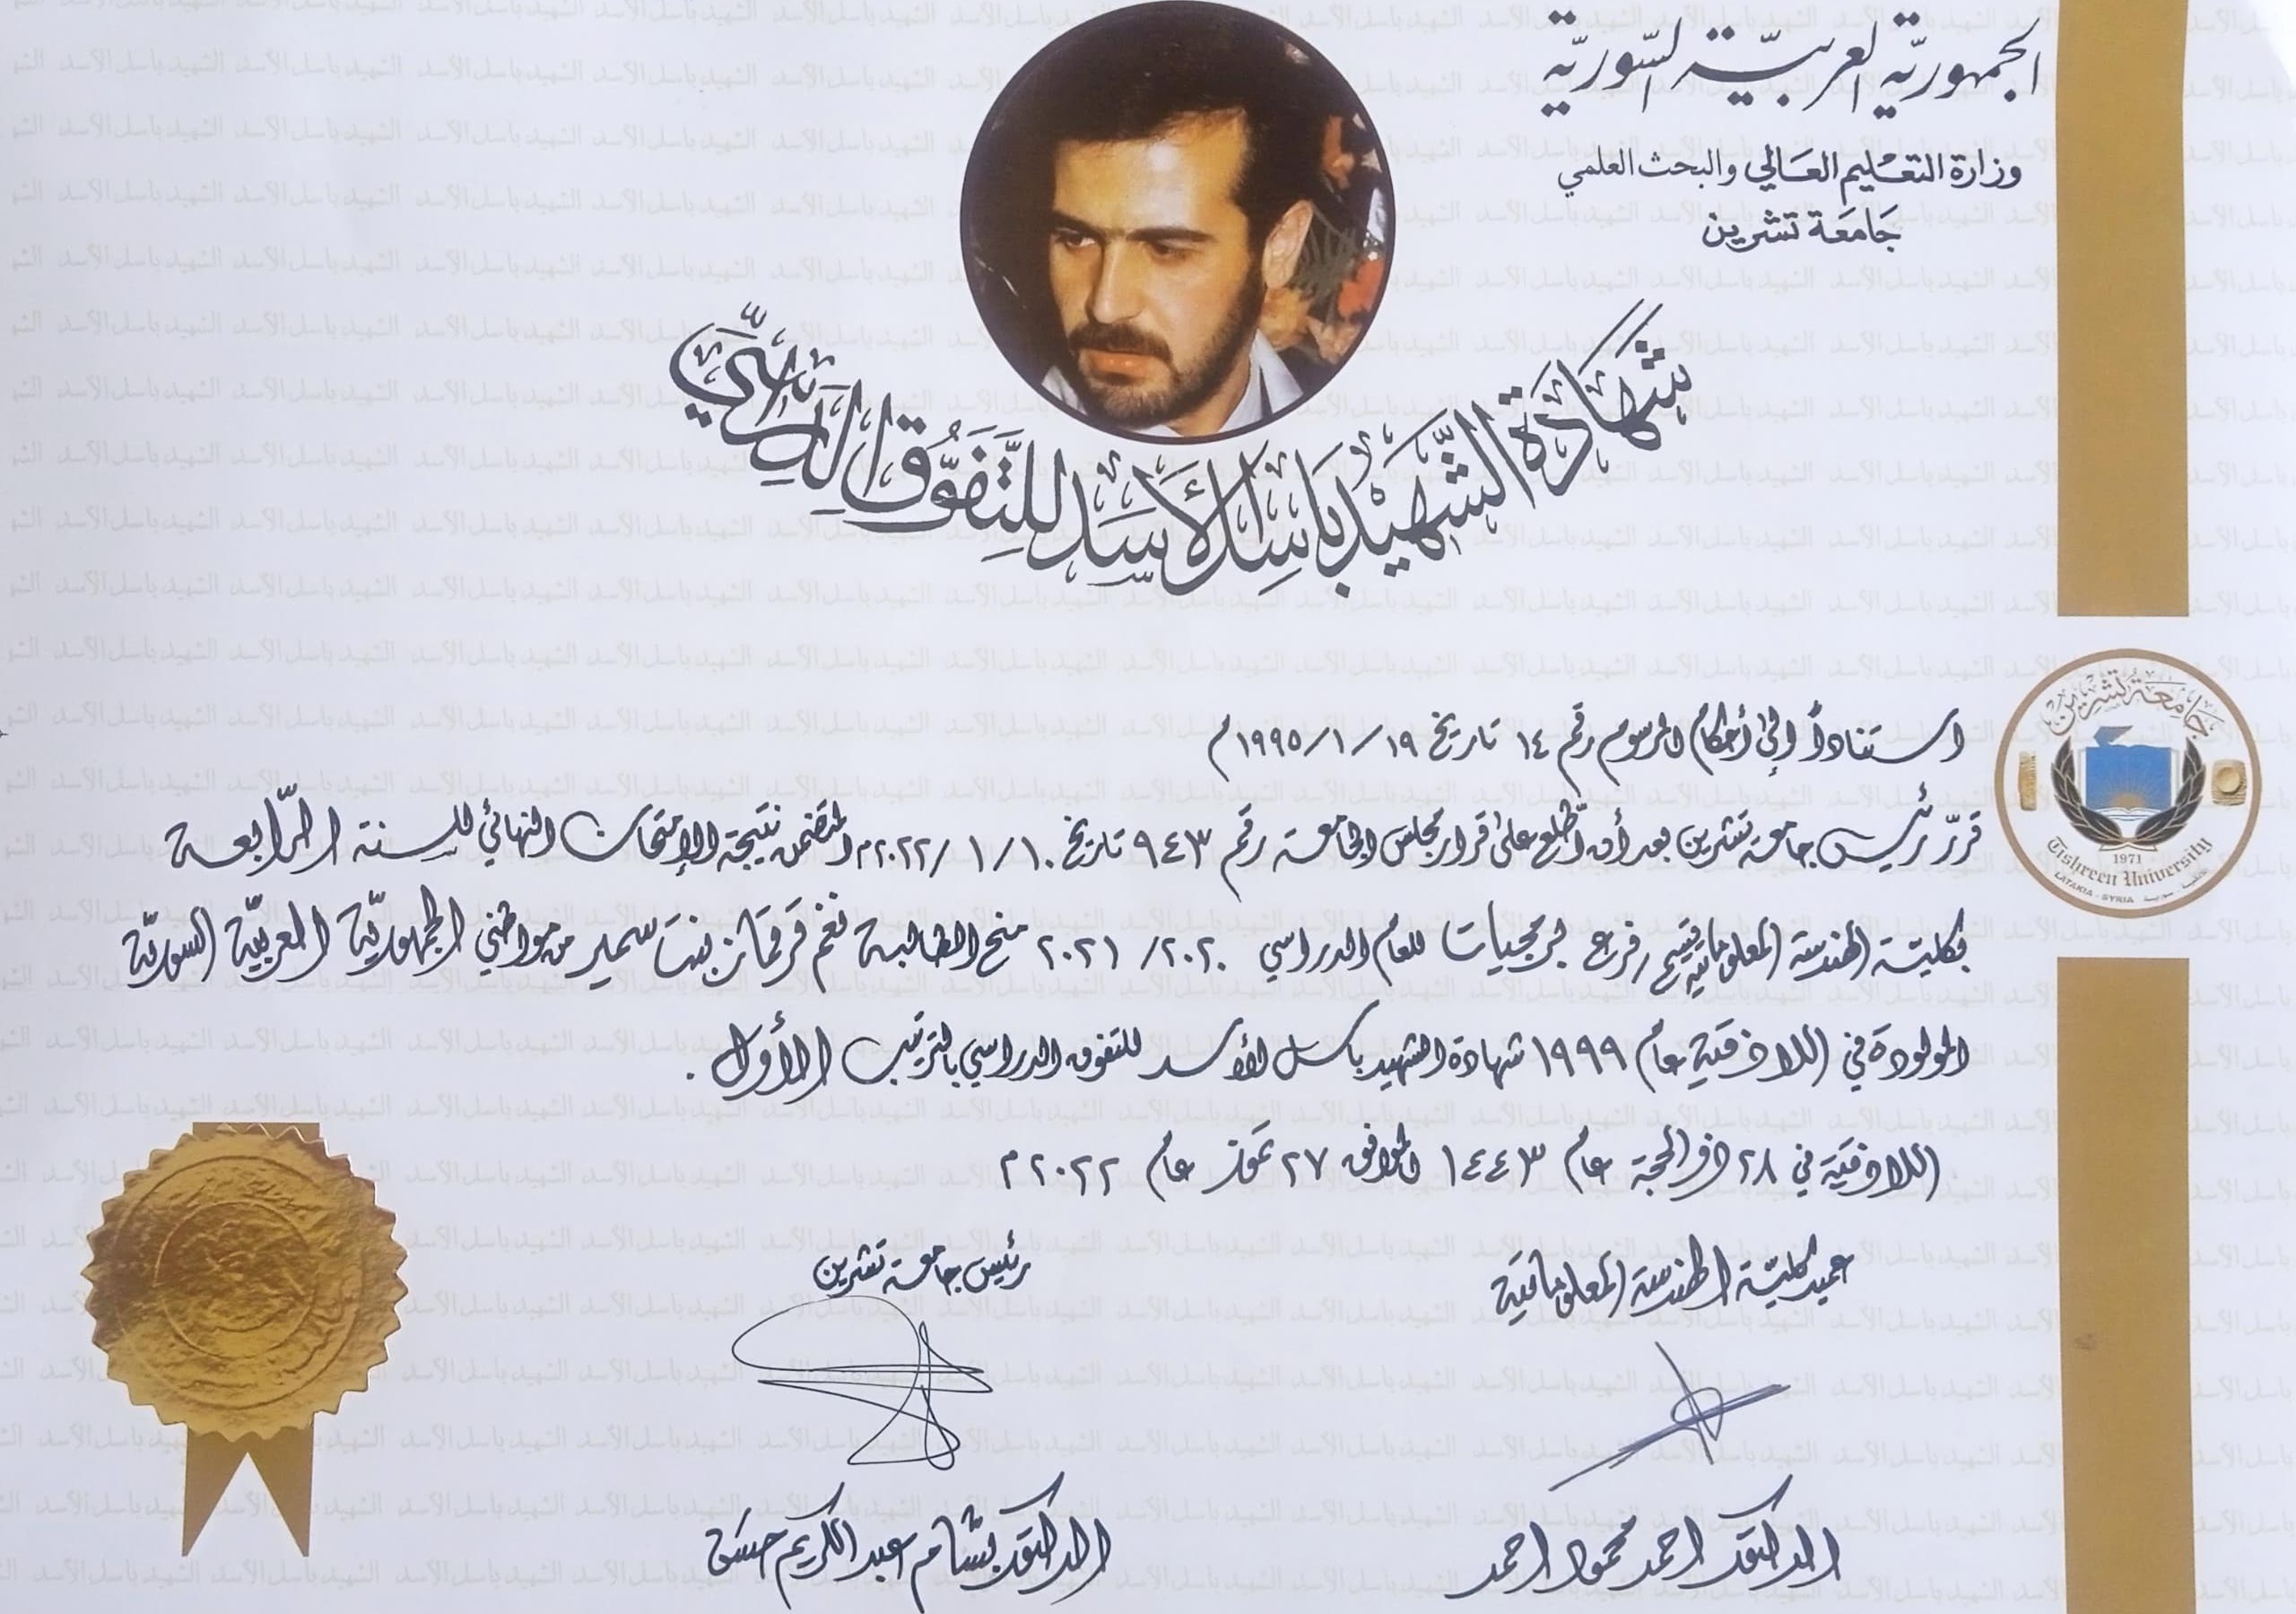 الجمهوريّة العربيّة السّوريّة
وزارة التعليم العالي والبحث العلمي
جامعة تشرين
شهادة الشّهيد باسل الأسد للتّفوّق الدّراسّي
جامعة تشرين
1971
Tishreen University
LATAKIA - SYRIA
استناداً إلى أحكام المرسوم رقم ١٤ تاريخ ١٩/١/١٩٩٥م
قرّر رئيس جامعة تشرين بعد أن اطّلع على قرار مجلس الجامعة رقم ٩٤٣ تاريخ ١٠/١/٢٠٢٢م المتضمن نتيجة الإمتحان النهائي للسنة الرّابعة
بكليّة الهندسة المعلوماتية قسم/فرع برمجيات للعام الدراسي ٢٠٢٠/٢٠٢١ منح الطالبة نغم قرقماز بنت سمير من مواطني الجمهوريّة العربيّة السوريّة
المولودة في اللاذقية عام ١٩٩٩ شهادة الشهيد باسل الأسد للتفوق الدراسي بالترتيب الأول .
اللاذقية في ٢٨ ذو الحجة عام ١٤٤٣ الموافق ٢٧ تموز عام ٢٠٢٢م
عميد كليّة الهندسة المعلوماتيّة
رئيس جامعة تشرين
الدكتور احمد محمود احمد
الدكتور بسّام عبد الكريم حسن